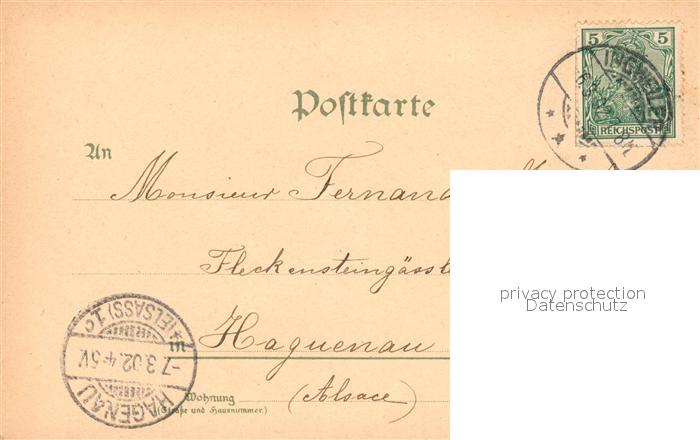 5 5
REICHSPOST
INGWEILER
Postkarte
An
Monsieur Fernand
Fleckensteingässl
in Haguenau
Wohnung
(Straße und Hausnummer.)
(Alsace)
HAGENAU
-7.3.02.4-5V.
(ELSASS) 1
privacy protection
Datenschutz